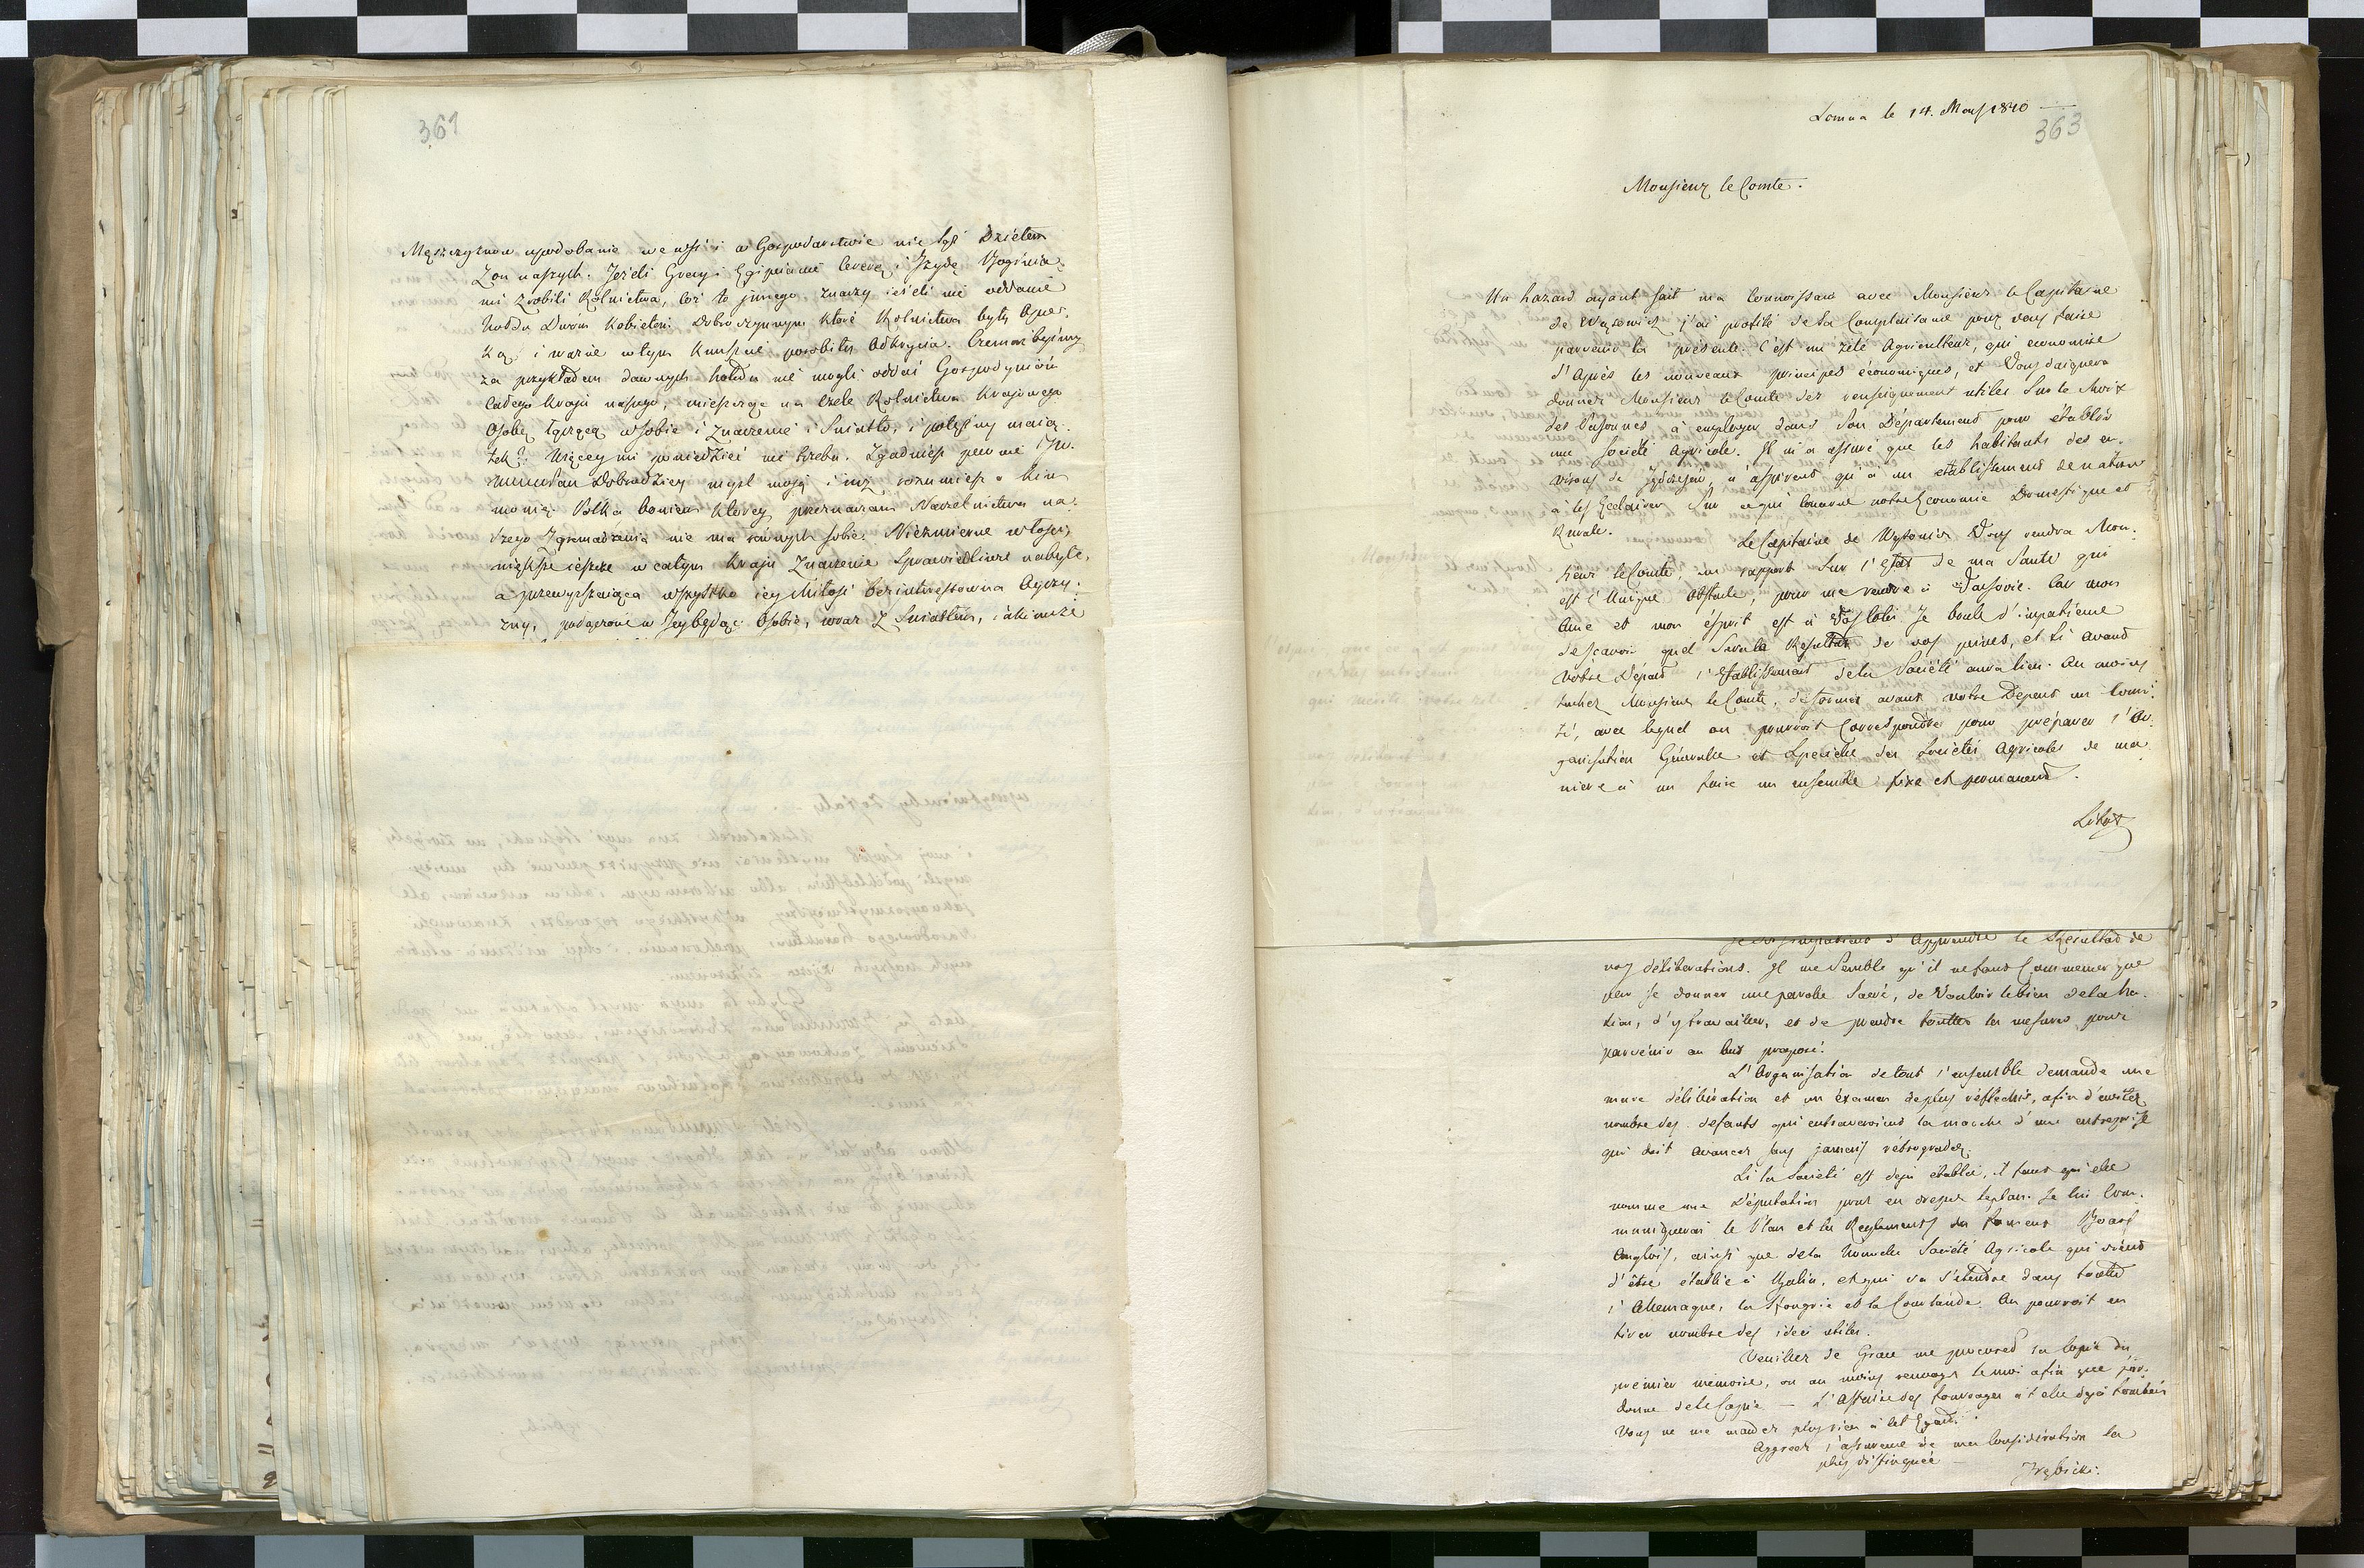 361
Męszczyznom upodobanie we wsi i w Gospodarstwie nie jest Dziełem
Żon naszych. Jeżeli Grecy i Egipcianie Cererę i Izydę Boginia-
mi zrobili Rolnictwa, coż to innego znaczy jeżeli nie oddanie
hołdu Dwóm Kobietom Dobroczynnym które Rolnictwa były Opie-
ką i ważne w tym Kunszcie porobiły Odkrycia. Czemuż byśmy
za przykładem dawnych hołdu nie mogli oddać Gospodyniom
Całego Kraju naszego, mieszcząc na czele Rolnictwa Krajowego
Osobę łączącą w sobie i Znaczenie i Swiatło, i potężny mają-
tek? Więcey mi powiedzieć nie trzeba. Zgadniesz pewnie JW.
Dobrodziey mysl moją i mię rozumiesz o kim
mowię. Polka bowiem ktorey przeznaczam Naczelnictwo na-
szego Zgromadzenia nie ma rownych sobie. Niezmierne włości,
większe ieszcze w całym Kraju Znaczenie Sprawiedliwie nabyte,
a przewyższaiąca wszystko iey Miłość bezinteressowna Oyczy-
zny, połączone w Jey będąc Osobie, wraz z Swiatłem, iakie
Lomna le 14. Mars 1810
363
Monsieur le Comte.
Un hazard ayant fait ma Connoissance avec Monsieur le Capitaine
de Wąsowicz j'ai profité de sa Complaisance pour vous faire
parvenir la présente. C'est un zélé Agriculteur, qui economise
d'Après les nouveaux principes économiques, et Vous daignera
donner Monsieur le Comte des renseignement utiles Sur le choix
des Personnes à employer dans Son Département pour établir
une Société Agricole. Il m'a assuré que les habitants des en-
virons de n'aspirent qu'à un etablissement de nature
à les Eclairer Sur ce qui concerne notre Economie Domestique et
Rurale.
Le Capitaine de Wąsowicz Vous rendra Mon-
sieur le Comte un rapport Sur l'état de ma Santé qui
est l'Unique Obstacle, pour me rendre à Varsovie. Car mon
Ame et mon ésprit est à Vos Cotés. Je boule d'impatience
de scavoir quel Sera le Resultat de vos peines, et si avant
votre Départ l'Etablissement de la Société aura lieu. Au moins
tachez Monsieur le Comte, de former avant votre Depart un Comi-
té, avec lequel on pourroit Correspondre pour préparer l'Or-
ganisation Générale et Speciele des Societés Agricoles de ma-
niere à en faire un ensemble fixe et permanent.
Je suis impatient d'Apprendre le Résultat de
vos déliberations. Il me Semble qu'il ne faut Commencer que
par se donner une parole Sacré, de Vouloir le bien de la Na-
tion, d'y travailler, et de prendre touttes les mesures pour
parvénir au but proposé.
L'Organisation de tout l'ensemble demande une
mure délibération et un éxamen de plus réflechis, afin d'eviter
nombre des defauts qui entraveroient la marche d'une entreprise
qui doit avancer sans jamais rétrograder.
Si la Société est deja etablie, il faut qu'elle
nomme une Députation pour en dresser le plan. Je lui Com-
muniquerai le Plan et les Reglements du fameux Board
Anglois, ainsi que de la Nouvelle Société Agricole qui vient
d'être établie à, et qui va s'etendre dans toutte
l'Allemagne, la Hongrie et la Courlande. On pourroit en
tirer nombre des ideés utiles.
Veuillez de Grace me procurer la Copie du
prémier mémoire, ou au moins renvoyez le moi afin que j'or-
donne de le Copier — L'Affaire des fourrages a t'elle deja tombeé
Vous ne me mandez plus rien à cet Egard.
Aggreez l'assurence de ma Considération la
plus distinguée —
Trębicki.